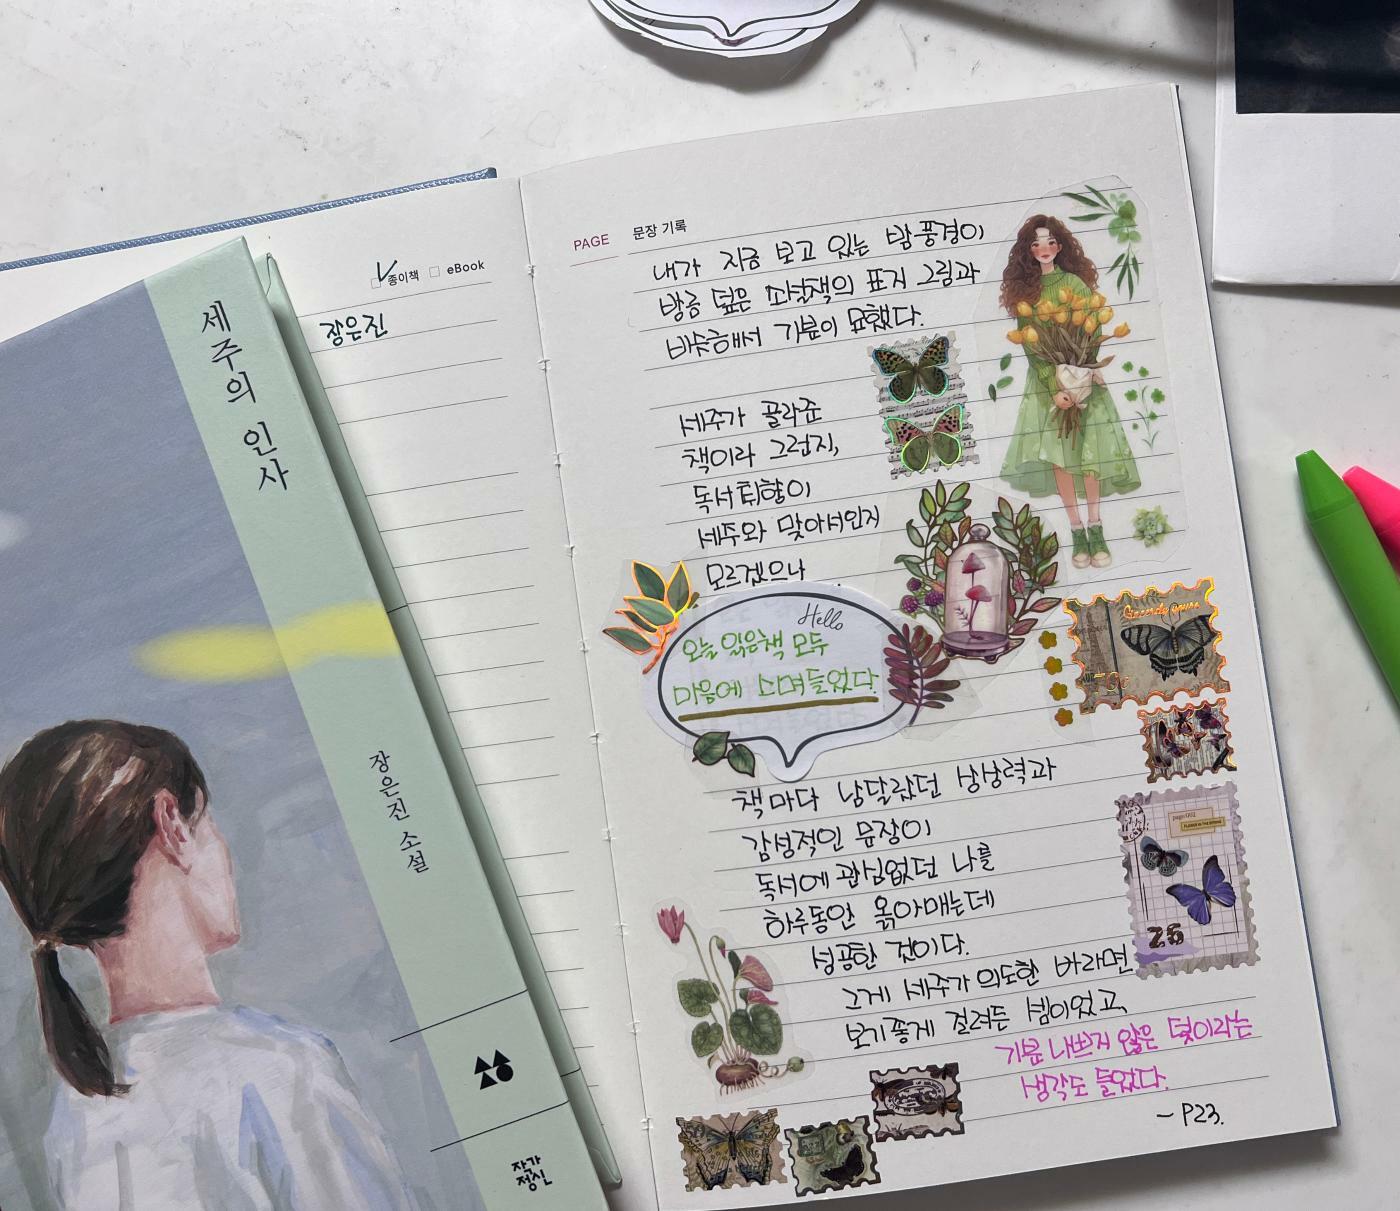 세주의 인사
장은진 소설
작가
정신
종이책 eBook
장은진
PAGE 문장 기록
내가 지금 보고 있는 밤 풍경이
방금 덮은 소설책의 표지 그림과
비슷해서 기분이 묘했다.
세주가 골라준
책이라 그런지,
독서취향이
세주와 맞아서인지
모르겠으나
Hello
오늘 읽은책 모두
마음에 스며들었다.
책마다 남달랐던 상상력과
감성적인 문장이
독서에 관심없던 나를
하루동안 옭아매는데
성공한 것이다.
그게 세주가 의도한 바라면
보기좋게 걸려든 셈이었고,
기분 나쁘지 않은 덫이라는
생각도 들었다.
- P23.
Sincerely yours
page.002
26